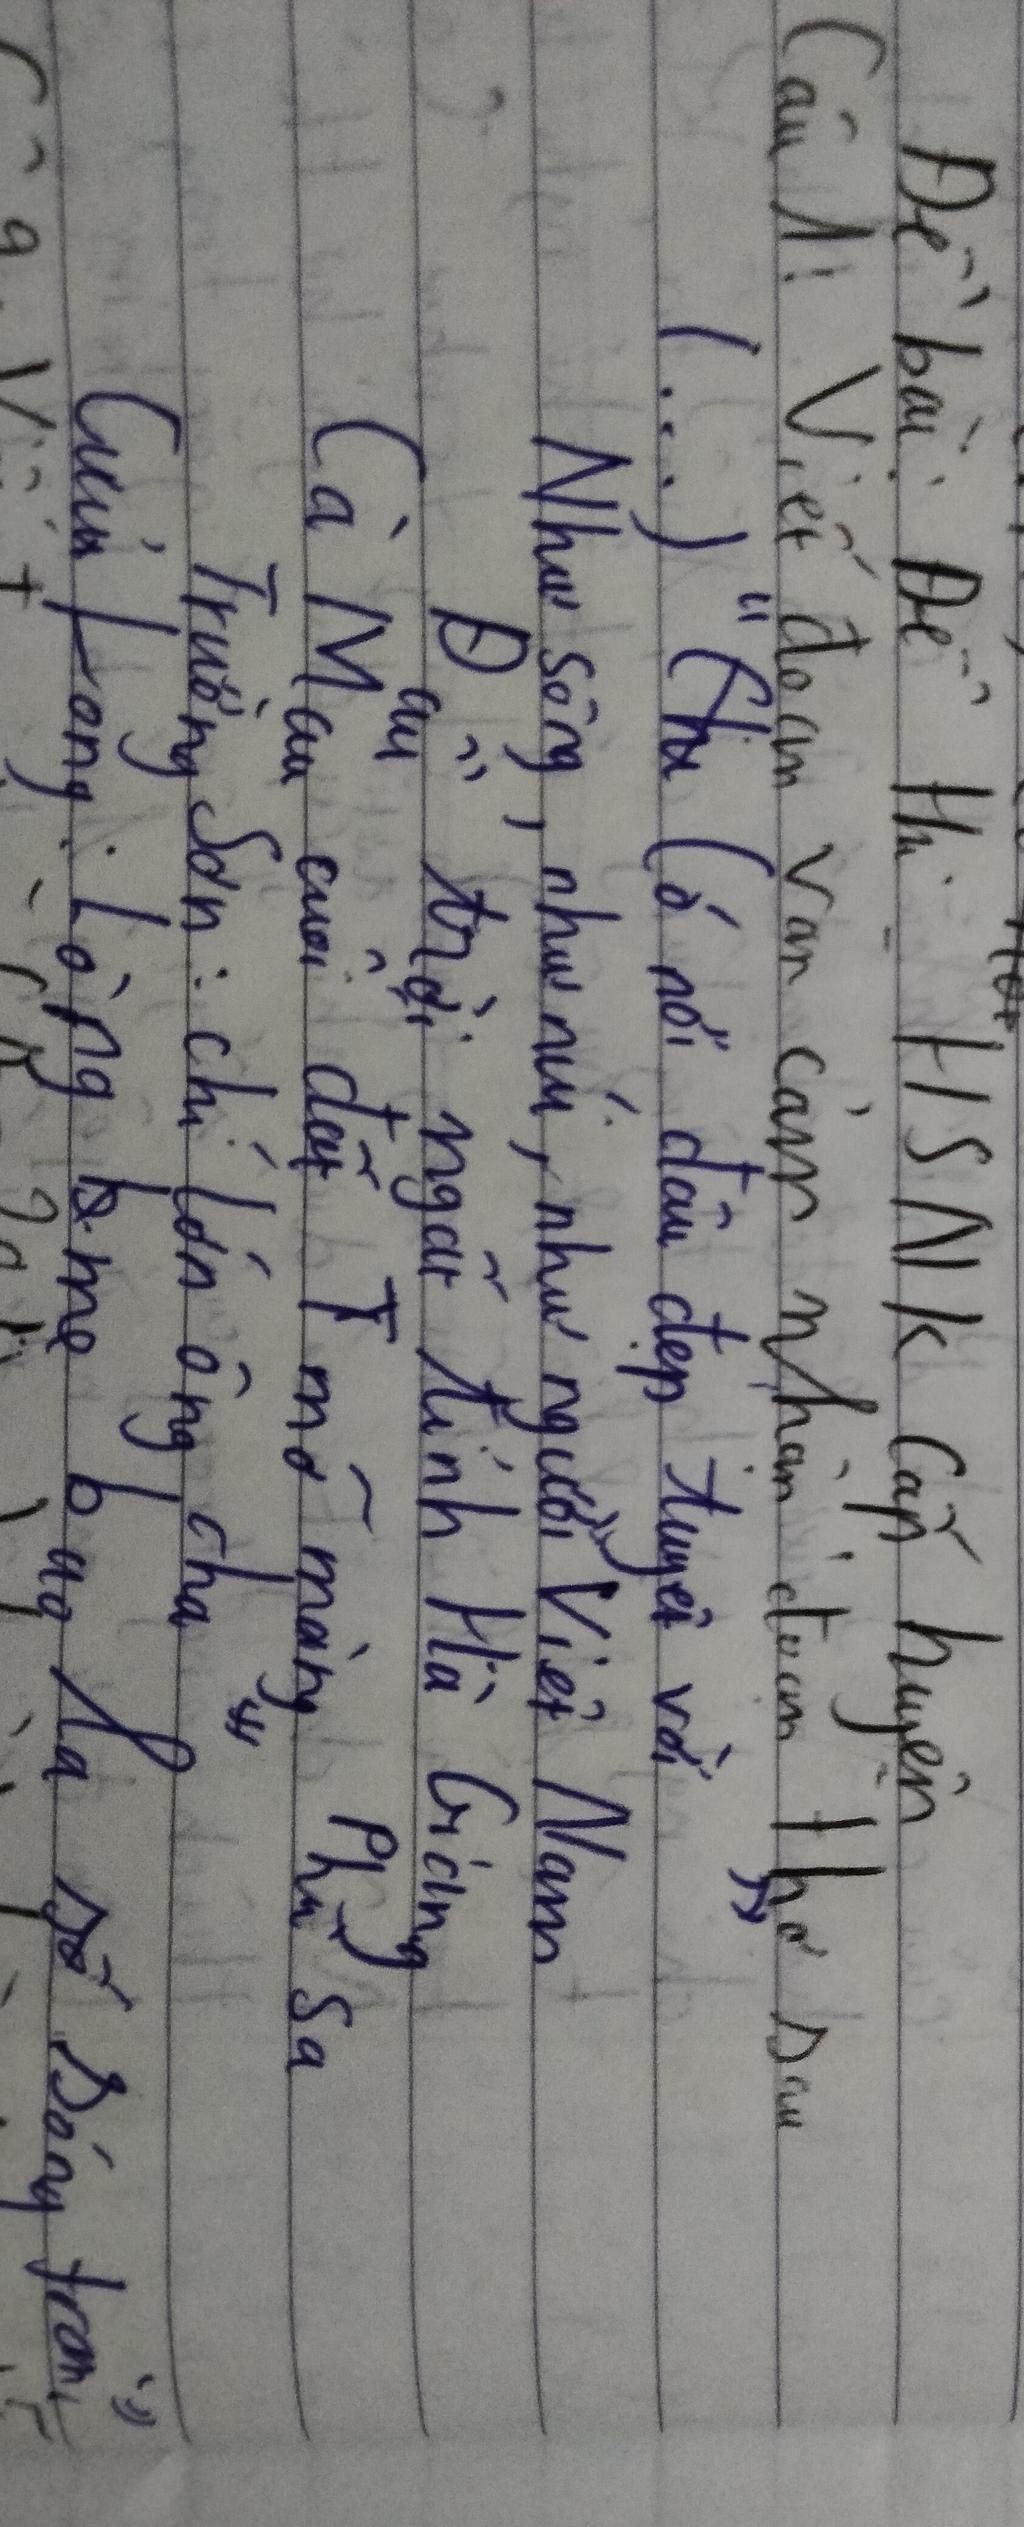 Đề bài: Đề thi HSNK Cấp huyện
Câu 1: Viết đoạn văn cảm nhận đoạn thơ sau
(...) "Chu Có nơi đâu đẹp tuyệt vời "
Như sông, như núi, như người Việt Nam
Đầu trời ngất tỉnh Hà Giang
Cà Mau cuối đất T mỡ màng Phù Sa
Trường Sơn: chí lớn ông cha
Cửu Long: Lòng mẹ bao la sóng trào"